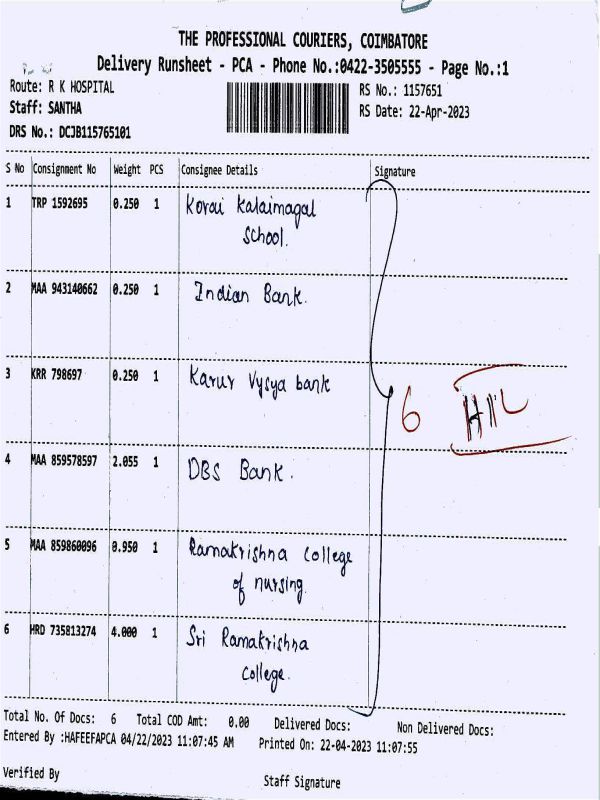 THE PROFESSIONAL COURIERS, COIMBATORE
Delivery Runsheet - PCA - Phone No.:0422-3505555 - Page No.:1
Route: R K HOSPITAL RS No.: 1157651
Staff: SANTHA RS Date: 22-Apr-2023
DRS No.: DCJB115765101
S No Consignment No Weight PCS Consignee Details Signature
1 TRP 1592695 0.250 1 Kovai Kalaimagal
School.
2 MAA 943140662 0.250 1 Indian Bank.
3 KRR 798697 0.250 1 Karur Vysya bank
6
4 MAA 859578597 2.055 1 DBS Bank.
5 MAA 859860096 0.950 1 Ramakrishna College
of nursing.
6 HRD 735813274 4.000 1 Sri Ramakrishna
College.
Total No. Of Docs: 6 Total COD Amt: 0.00 Delivered Docs: Non Delivered Docs:
Entered By :HAFEEFAPCA 04/22/2023 11:07:45 AM Printed On: 22-04-2023 11:07:55
Verified By Staff Signature